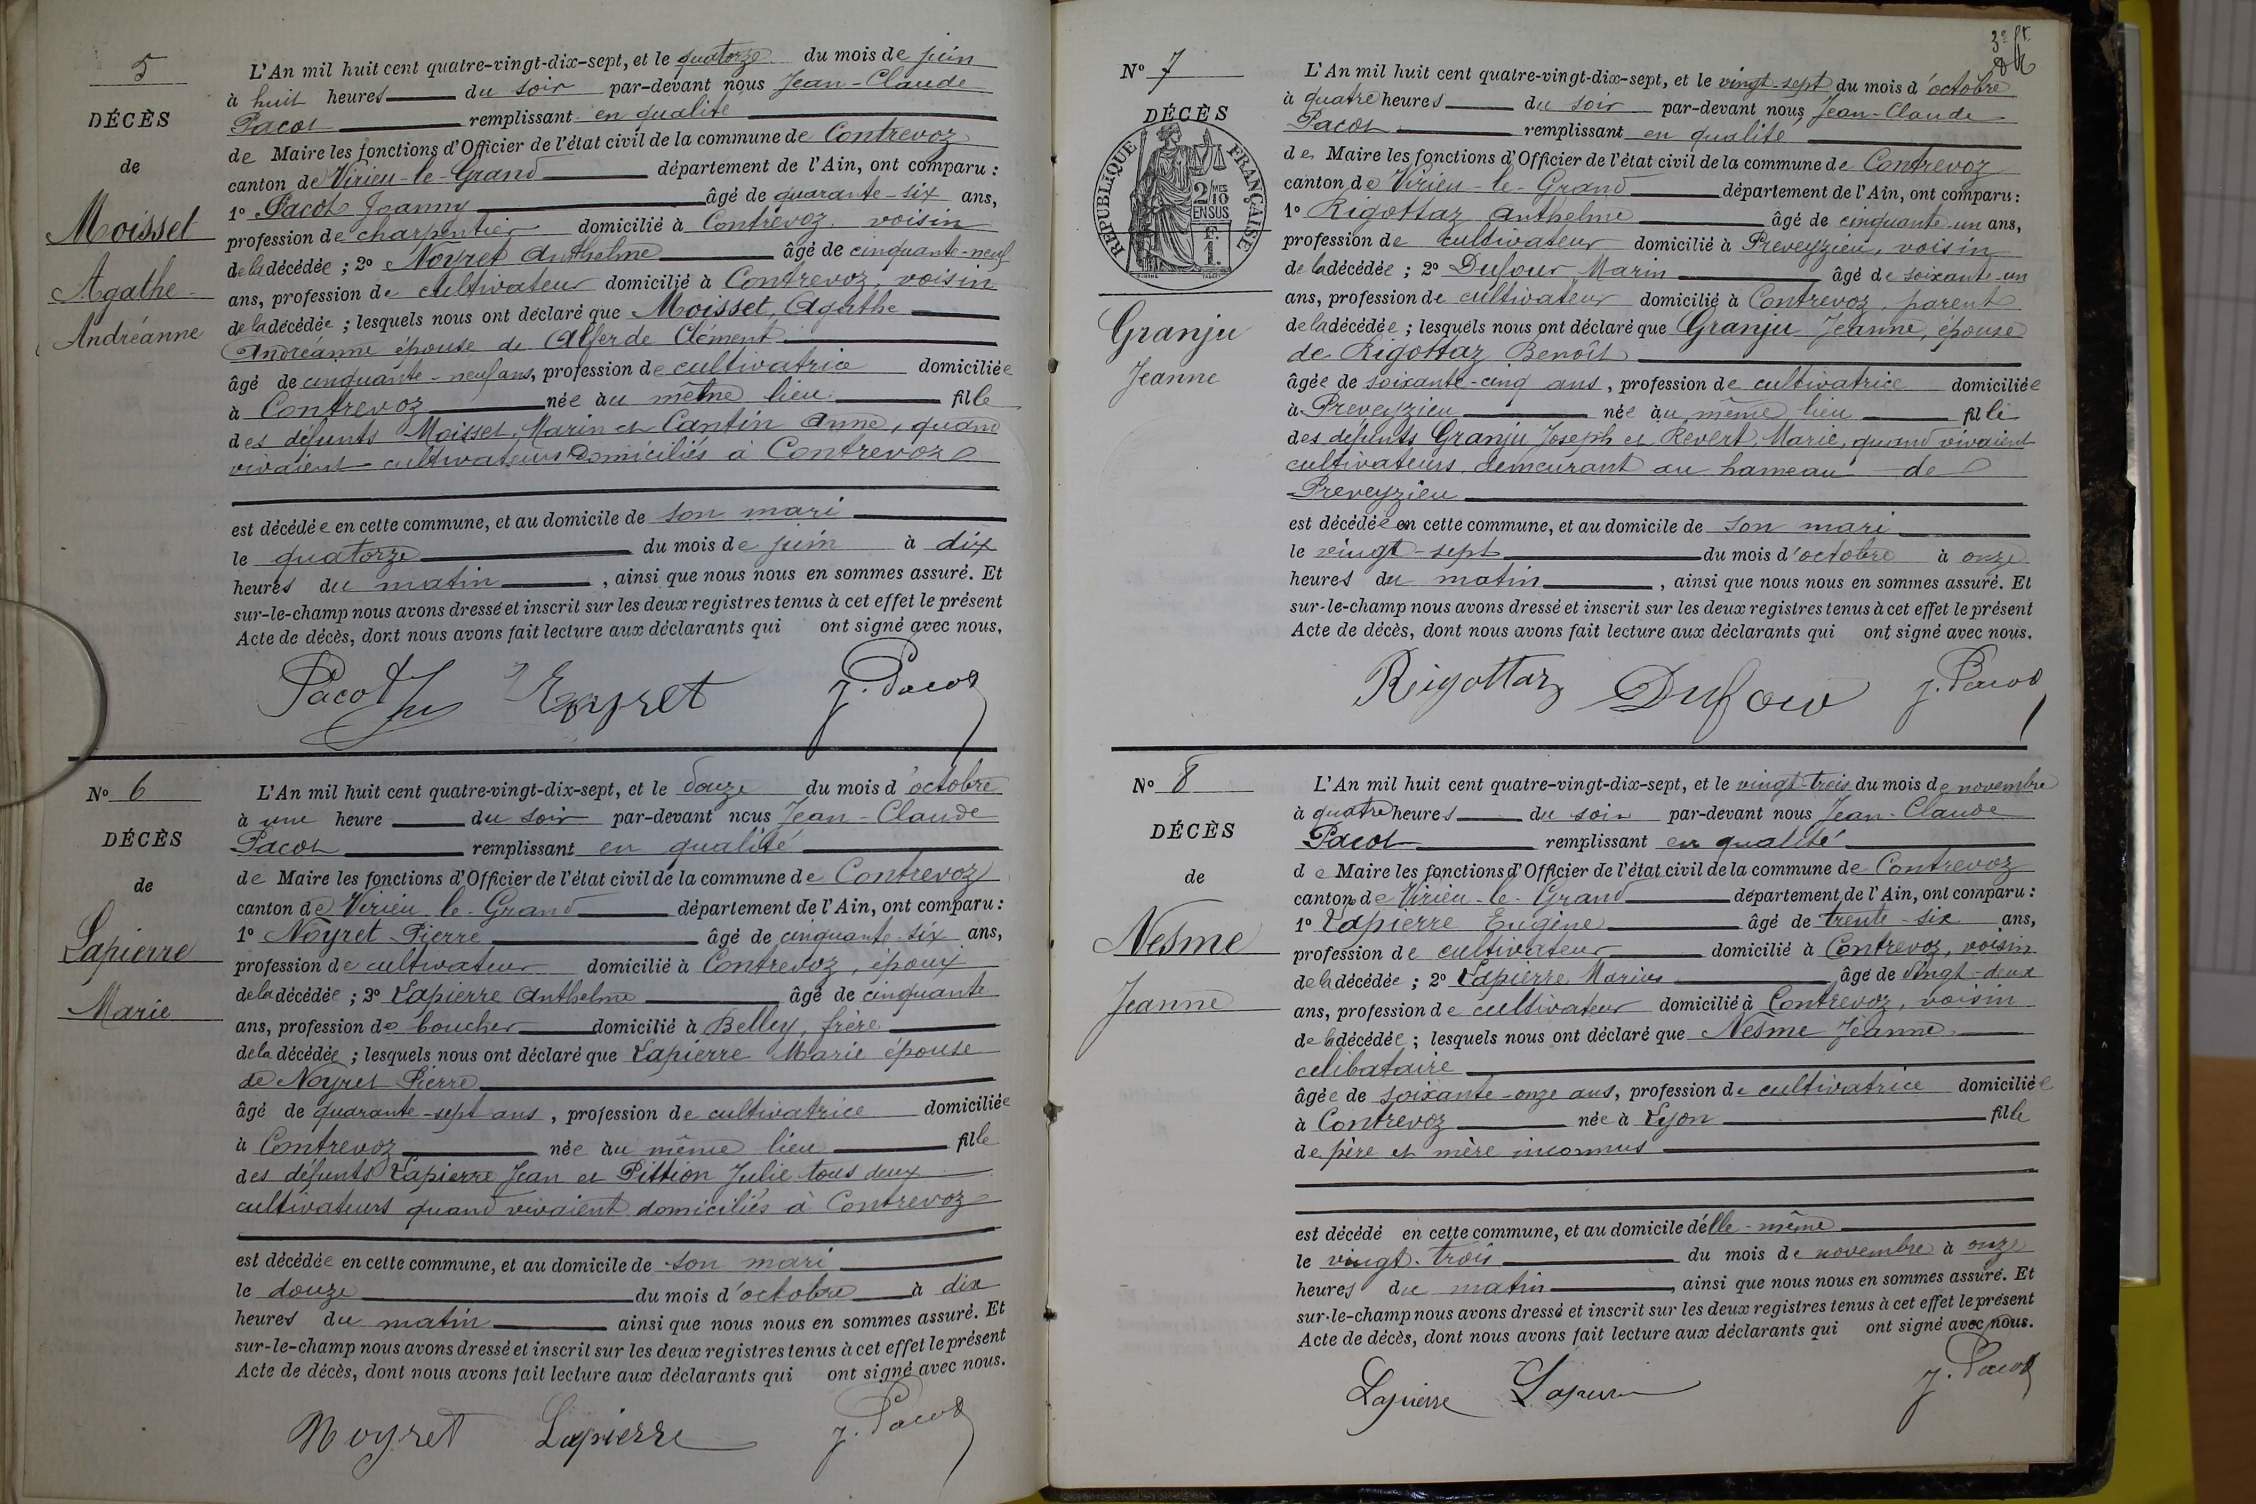 5
DÉCÈS
de
Moisset
Agathe
Andréanne
L'An mil huit cent quatre-vingt-dix-sept, et le quatorze du mois de juin
à huit heures du soir par-devant nous Jean-Claude
Pacot remplissant en qualité
de Maire les fonctions d'Officier de l'état civil de la commune de Contrevoz
canton de Virieu-le-Grand département de l'Ain, ont comparu :
1º Pacot Joanny âgé de quarante-six ans,
profession de charpentier domicilié à Contrevoz, voisin
de la décédée ; 2º Noyret Anthelme âgé de cinquante-neuf
ans, profession de cultivateur domicilié à Contrevoz, voisin
de la décédée ; lesquels nous ont déclaré que Moisset, Agathe
Andréanne épouse de Clément
âgé de cinquante-neuf ans, profession de cultivatrice domiciliée
à Contrevoz née au même lieu fille
des défunts Moisset, Marin et Cantin Anne, quand
vivaient cultivateurs domiciliés à Contrevoz
est décédée en cette commune, et au domicile de son mari
le quatorze du mois de juin à dix
heures du matin, ainsi que nous nous en sommes assuré. Et
sur-le-champ nous avons dressé et inscrit sur les deux registres tenus à cet effet le présent
Acte de décès, dont nous avons fait lecture aux déclarants qui ont signé avec nous.
Pacot Noyret J. Pacot
Nº 6
DÉCÈS
de
Lapierre
Marie
L'An mil huit cent quatre-vingt-dix-sept, et le douze du mois d'octobre
à une heure du soir par-devant nous Jean-Claude
Pacot remplissant en qualité
de Maire les fonctions d'Officier de l'état civil de la commune de Contrevoz
canton de Virieu-le-Grand département de l'Ain, ont comparu :
1º Noyret Pierre âgé de cinquante-six ans,
profession de cultivateur domicilié à Contrevoz, époux
de la décédée ; 2º Lapierre Anthelme âgé de cinquante
ans, profession de boucher domicilié à Belley, frère
de la décédée ; lesquels nous ont déclaré que Lapierre Marie épouse
de Noyret Pierre
âgé de quarante-sept ans, profession de cultivatrice domiciliée
à Contrevoz née au même lieu fille
des défunts Lapierre Jean et Pittion Julie tous deux
cultivateurs quand vivaient domiciliés à Contrevoz
est décédée en cette commune, et au domicile de son mari
le douze du mois d'octobre à dix
heures du matin ainsi que nous nous en sommes assuré. Et
sur-le-champ nous avons dressé et inscrit sur les deux registres tenus à cet effet le présent
Acte de décès, dont nous avons fait lecture aux déclarants qui ont signé avec nous.
Noyret Lapierre J. Pacot
Nº 7
DÉCÈS
RÉPUBLIQUE FRANÇAISE
2/10 MES
EN SUS
F.
1.
Granju
Jeanne
L'An mil huit cent quatre-vingt-dix-sept, et le vingt-sept du mois d'octobre
à quatre heures du soir par-devant nous Jean-Claude
Pacot remplissant en qualité
de Maire les fonctions d'Officier de l'état civil de la commune de Contrevoz
canton de Virieu-le-Grand département de l'Ain, ont comparu :
1º Rigottaz Anthelme âgé de cinquante-un ans,
profession de cultivateur domicilié à Preveyzieu, voisin
de la décédée ; 2º Dufour Marin âgé de soixante-un
ans, profession de cultivateur domicilié à Contrevoz, parent
de la décédée ; lesquels nous ont déclaré que Granju Jeanne, épouse
de Rigottaz Benoît
âgée de soixante-cinq ans, profession de cultivatrice domiciliée
à Preveyzieu née au même lieu fille
des défunts Granju Joseph et Revert Marie, quand vivaient
cultivateurs demeurant au hameau de
Preveyzieu
est décédée en cette commune, et au domicile de son mari
le vingt-sept du mois d'octobre à onze
heures du matin, ainsi que nous nous en sommes assuré. Et
sur-le-champ nous avons dressé et inscrit sur les deux registres tenus à cet effet le présent
Acte de décès, dont nous avons fait lecture aux déclarants qui ont signé avec nous.
Rigottaz Dufour J. Pacot
Nº 8
DÉCÈS
de
Nesme
Jeanne
L'An mil huit cent quatre-vingt-dix-sept, et le vingt-trois du mois de novembre
à quatre heures du soir par-devant nous Jean-Claude
Pacot remplissant en qualité
de Maire les fonctions d'Officier de l'état civil de la commune de Contrevoz
canton de Virieu-le-Grand département de l'Ain, ont comparu :
1º Lapierre Eugène âgé de trente-six ans,
profession de cultivateur domicilié à Contrevoz, voisin
de la décédée ; 2º Lapierre Marius âgé de vingt-deux
ans, profession de cultivateur domicilié à Contrevoz, voisin
de la décédée ; lesquels nous ont déclaré que Nesme Jeanne
célibataire
âgée de soixante-onze ans, profession de cultivatrice domiciliée
à Contrevoz née à Lyon fille
de père et mère inconnus
est décédé en cette commune, et au domicile d'elle-même
le vingt-trois du mois de novembre à onze
heures du matin, ainsi que nous nous en sommes assuré. Et
sur-le-champ nous avons dressé et inscrit sur les deux registres tenus à cet effet le présent
Acte de décès, dont nous avons fait lecture aux déclarants qui ont signé avec nous.
Lapierre Lapierre J. Pacot